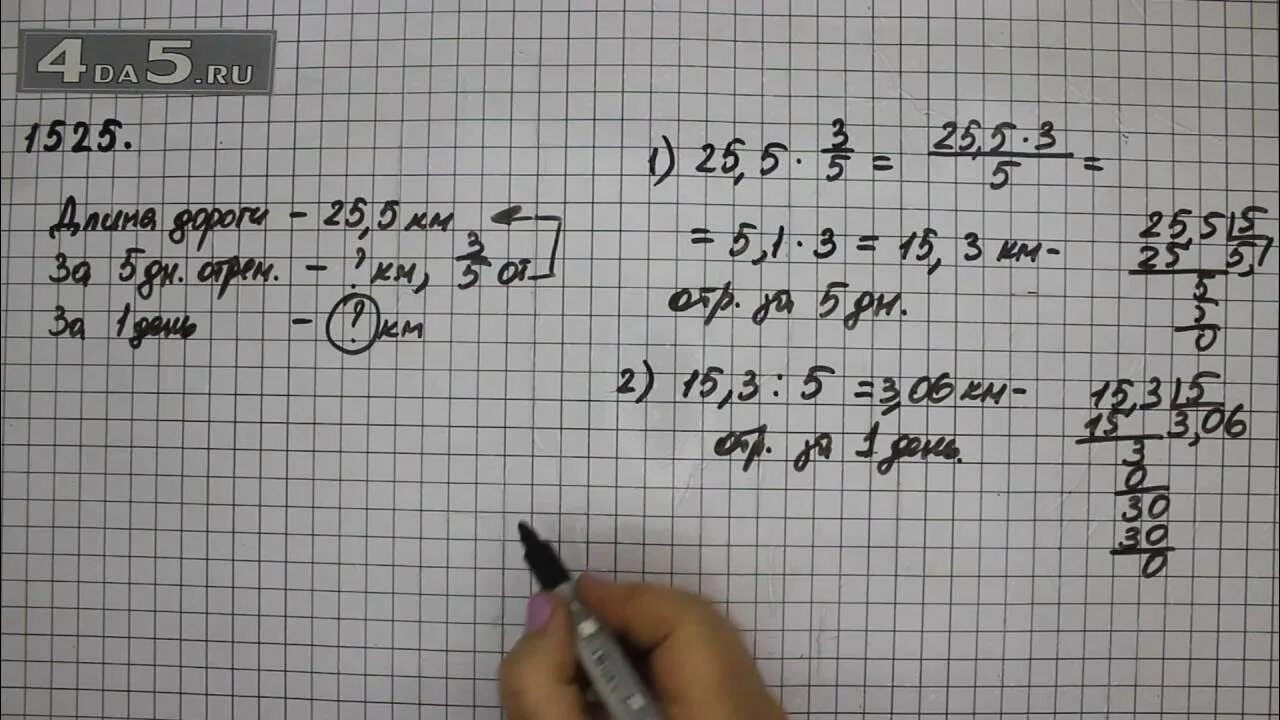 4DA5.RU
1525.
Длина дороги - 25,5 км
За 5 дн. отрем. - ? км, 3/5 от
За 1 день - ? км
1) 25,5 · 3/5 = 25,5·3/5 =
= 5,1 · 3 = 15,3 км -
отр. за 5 дн.
25,5 5
25 5,1
5
5
0
2) 15,3 : 5 = 3,06 км -
отр. за 1 день.
15,3 5
15 3,06
3
0
30
30
0